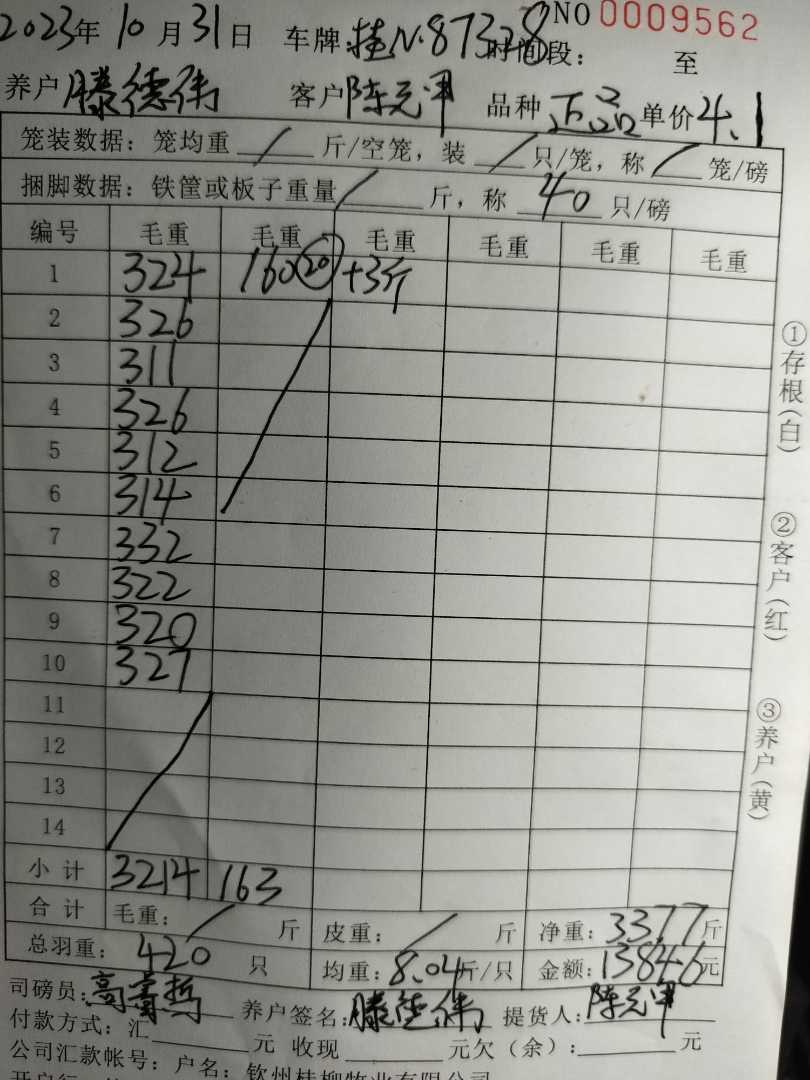 2023年 10月 31日 车牌:桂N·87328 时间段: 至 NO 0009562
养户 滕德伟 客户 陈元甲 品种 正品 单价 4.1
笼装数据: 笼均重 / 斤/空笼, 装 / 只/笼, 称 / 笼/磅
捆脚数据: 铁筐或板子重量 / 斤, 称 40 只/磅
编号 毛重 毛重 毛重 毛重 毛重 毛重
1 324 160 20 +3斤
2 326
3 311
4 326
5 312
6 314
7 332
8 322
9 320
10 327
11
12
13
14
小计 3214 163
合计 毛重: / 斤 皮重: / 斤 净重: 3377 斤
总羽重: 420 只 均重: 8.04 斤/只 金额: 13846 元
司磅员: 高 养户签名: 滕德伟 提货人: 陈元甲
付款方式: 汇 元 收现 元欠(余): 元
公司汇款帐号: 户名: 钦州桂柳牧业有限公司
开户行
①存根(白)
②客户(红)
③养户(黄)